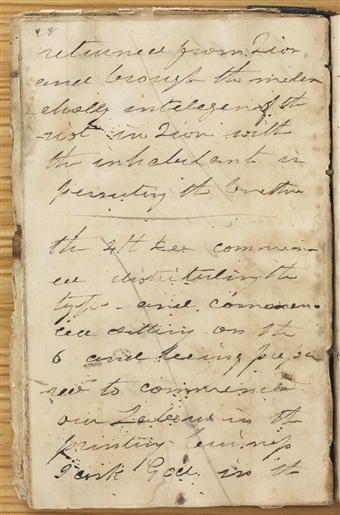 48
returned from Zion
and brough the melen
cholly intelegen of the
riot in Zion with
the inhabitant in
persuting the brethren
the 4th Dec commen-
ced distributing the
type - and commen
ced setting on the
6 and being prepa
red to commence
our Labours in the
printing buisness
I ask God in the